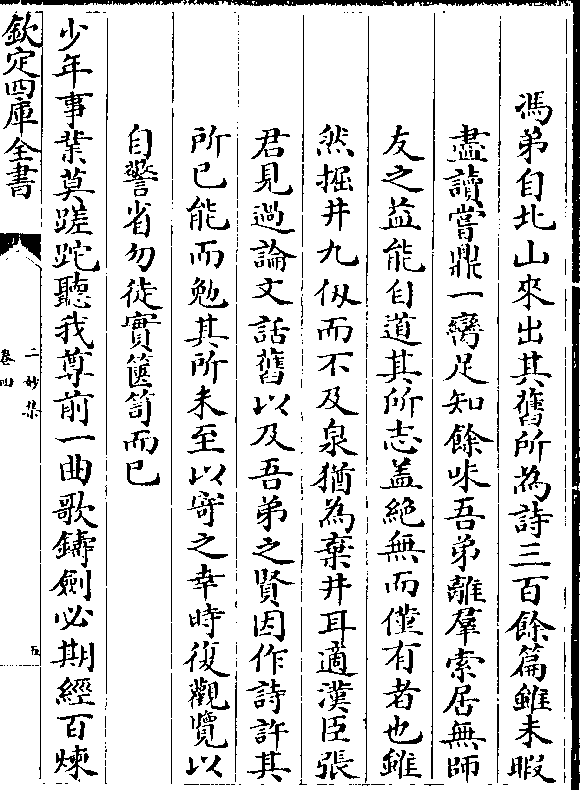 馮弟自北山來出其舊所為詩三百餘篇雖未暇
盡讀嘗鼎一臠足知餘味吾弟離羣索居無師
友之益能自道其所志蓋絶無而僅有者也雖
然掘井九仭而不及泉猶為棄井耳適漢臣張
君見過論文話舊以及吾弟之賢因作詩許其
所已能而勉其所未至以寄之幸時復觀覽以
自警省勿徒實篋笥而已
少年事業莫蹉跎聽我尊前一曲歌鑄劍必期經百煉
欽定四庫全書
二妙集
卷四
五